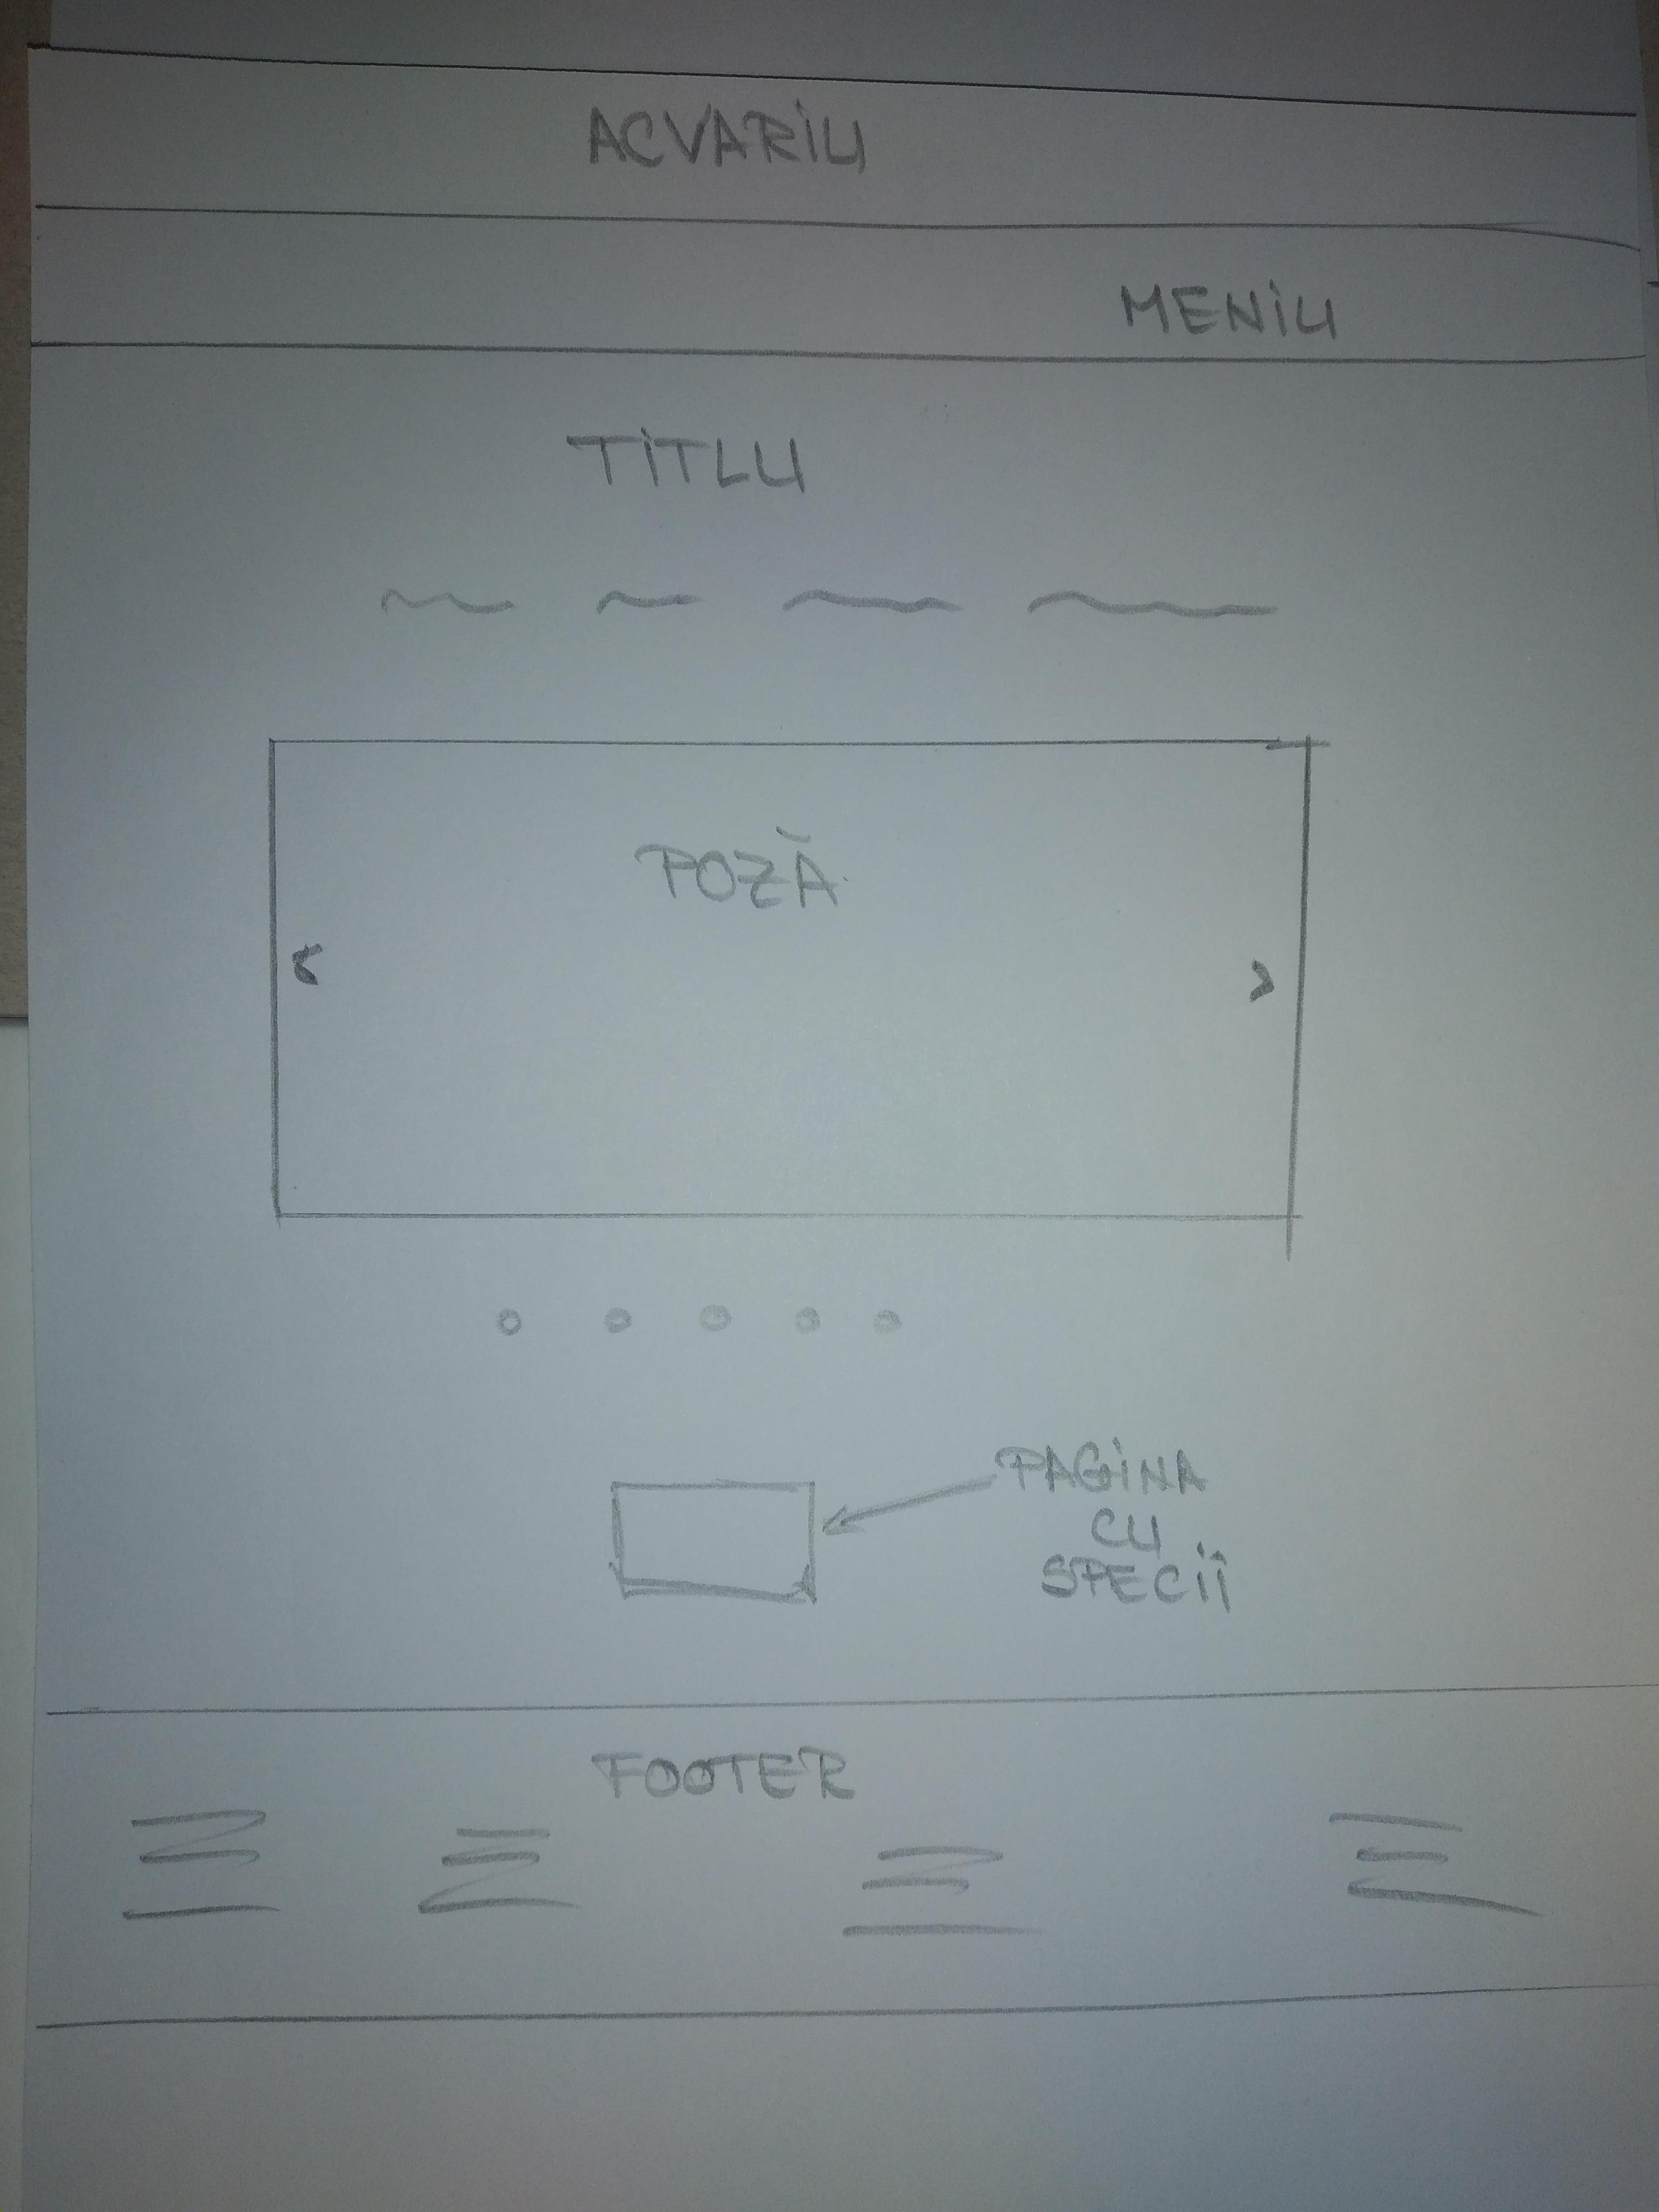 ACVARIU
MENIU
TITLU
POZĂ
‹ ›
PAGINA
CU
SPECII
FOOTER